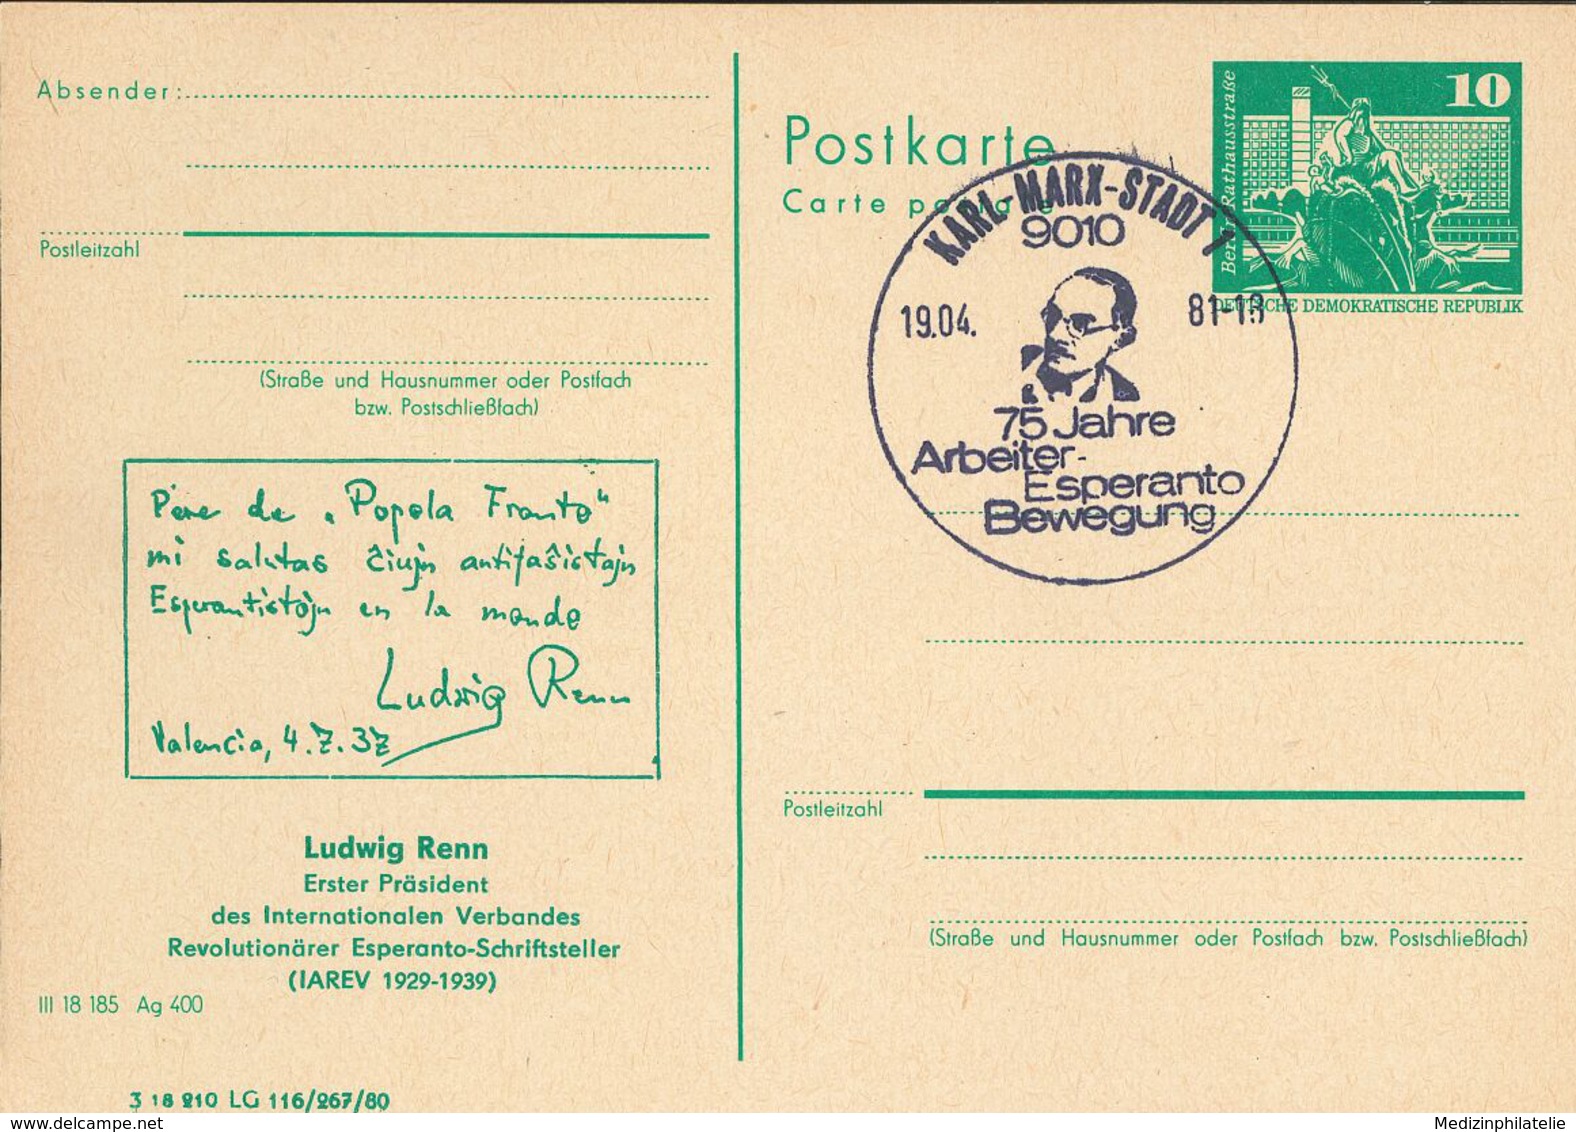 Absender:
Postleitzahl
(Straße und Hausnummer oder Postfach
bzw. Postschließfach)
Pere de „Popola Fronto“
mi salutas ĉiujn antifaŝistajn
Esperantistojn en la mondo
Ludwig Renn
Valencia, 4.7.37
Ludwig Renn
Erster Präsident
des Internationalen Verbandes
Revolutionärer Esperanto-Schriftsteller
(IAREV 1929-1939)
III 18 185 Ag 400
3 18 210 LG 116/267/80
Postkarte
Carte postale
10
Berlin, Rathausstraße
DEUTSCHE DEMOKRATISCHE REPUBLIK
KARL-MARX-STADT 1
9010
19.04. 81-18
75 Jahre
Arbeiter-
Esperanto
Bewegung
Postleitzahl
(Straße und Hausnummer oder Postfach bzw. Postschließfach)
delcampe.net
Medizinphilatelie